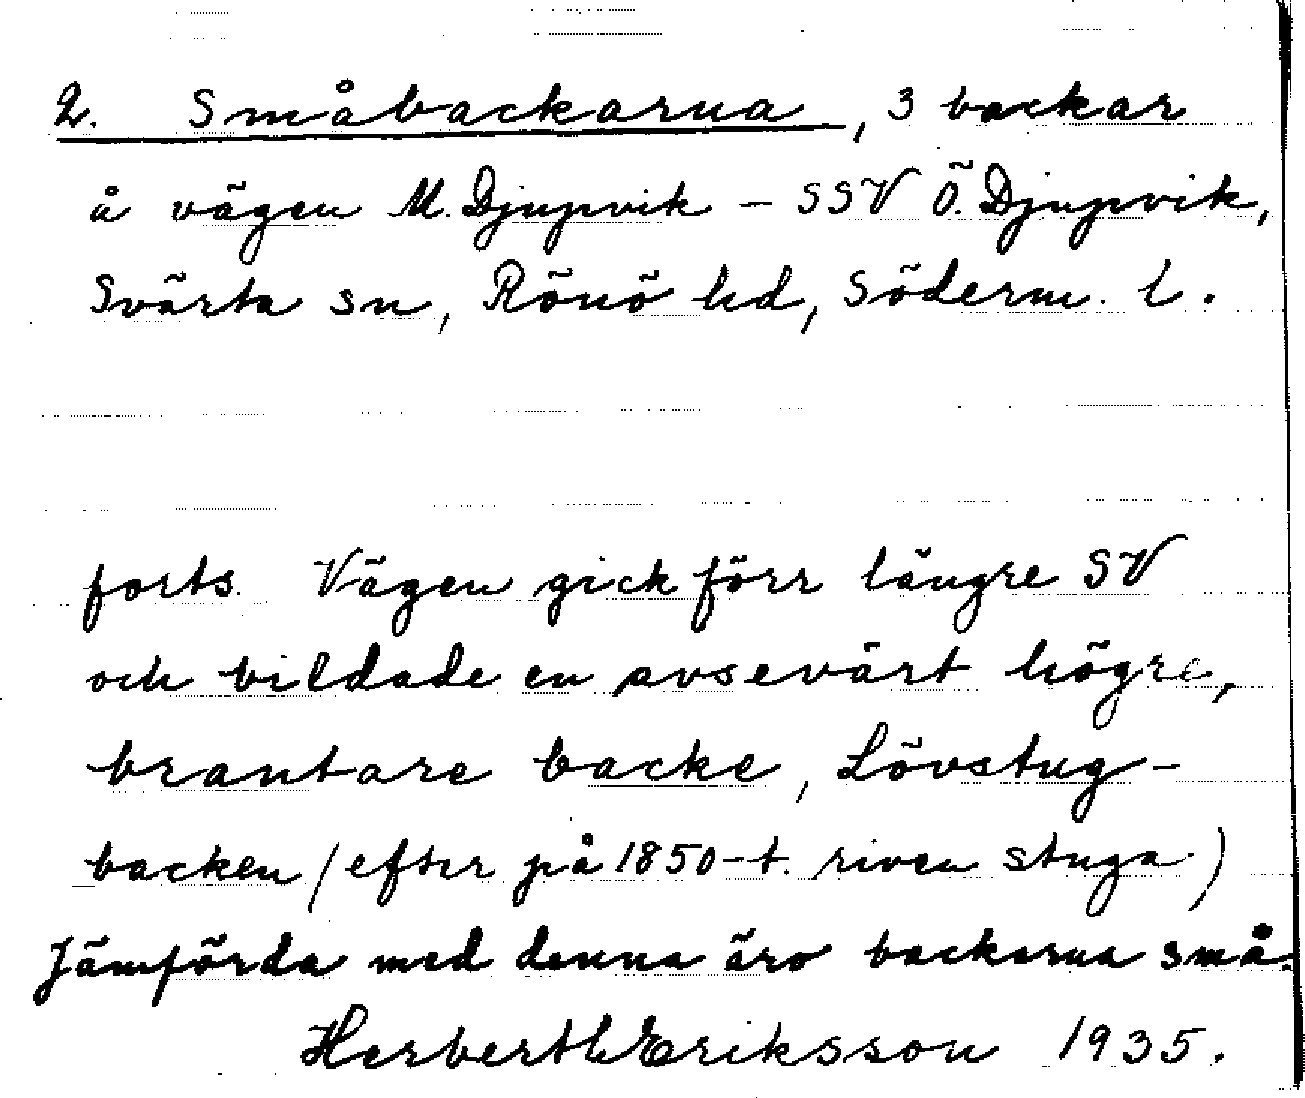 2. Småbackarna, 3 backar
å vägen M. Djupvik – SSV Ö. Djupvik,
Svärta sn, Rönö hd, Söderm. l.
forts. Vägen gick förr längre SV
och bildade en avsevärt högre,
brantare backe, Lövstug-
backen (efter på 1850-t. riven stuga)
Jämförda med denna äro backarna små.
Herberth Eriksson 1935.